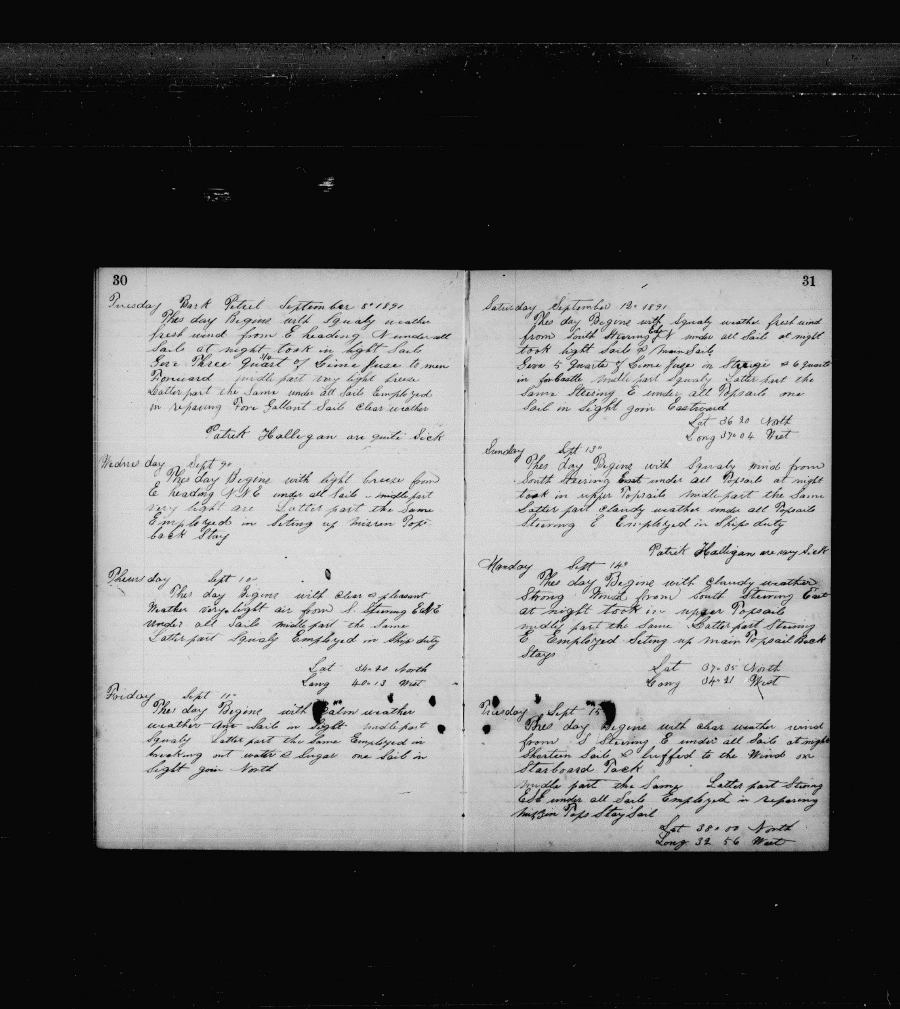 30
Tuesday Bark Petrel September 8" 1891
This day Begins with Squaly weather
fresh wind from E heading N under all
Sails at night took in light Sails
Give Three 3/4 Quart of Lime Juse to men
Forward midle part very light breese
Latter part the Same under all Sails Employed
in reparing Fore Gallant Sails Clear weather
Patrik Halligan are quite Sick
Wednesday Sept 9"
This day Begins with light breese from
E heading N.N.E under all Sails - midle part
very light are Latter part the Same
Employed in Seting up Missen Top
back Stay
Sept 10"
This day Begins with clear & pleasant
Weather very light air from S. Steering ENE
Under all Sails midle part the Same
Latter part Squaly Employed in Ships duty
Lat 34-20 North
Long 40-13 West
Friday Sept 11"
This day Begins with Calm weather
weather one Sail in Sight midle part
Squaly Latter part the Same Employed in
breaking out water & Sugar one Sail in
Sight goin North
31
Saturday September 12" 1891
This day Begins with Squaly weather fresh wind
from South Steering E by N under all Sail at night
took light Sails & main Sail
Give 5 Quarts of Lime Juse in & 6 Quarts
in forCastle midle part Squaly Later part the
Same Steering E under all Topsails one
Sail in Sight goin Eastward
Lat 36 20 North
Long 37-04 West
Sunday Sept 13"
This day Begins with Squaly wind from
South Steering East under all Topsails at night
took in upper Topsails midle part the Same
Latter part Claudy weather under all Topsails
Steering E Employed in Ships duty
Patrik Halligan are very Sick
Monday Sept 14"
This day Begins with Claudy weather
Strong Wind from South Steering East
at night took in upper Topsails
midle part the Same Latter part Steering
E Employed Seting up main Topsail Back
Stays
Lat 37-05 North
Long 34-21 West
Tuesday Sept 15
This day Begins with clear weather wind
from S Steering E under all Sails at night
Shorten Sails & luffed to the Wind on
Starboard Tack
midle part the Same Latter part Steering
ESE under all Sails Employed in reparing
Missin Tops StaySail
Lat 38-00 North
Long 32 56 West